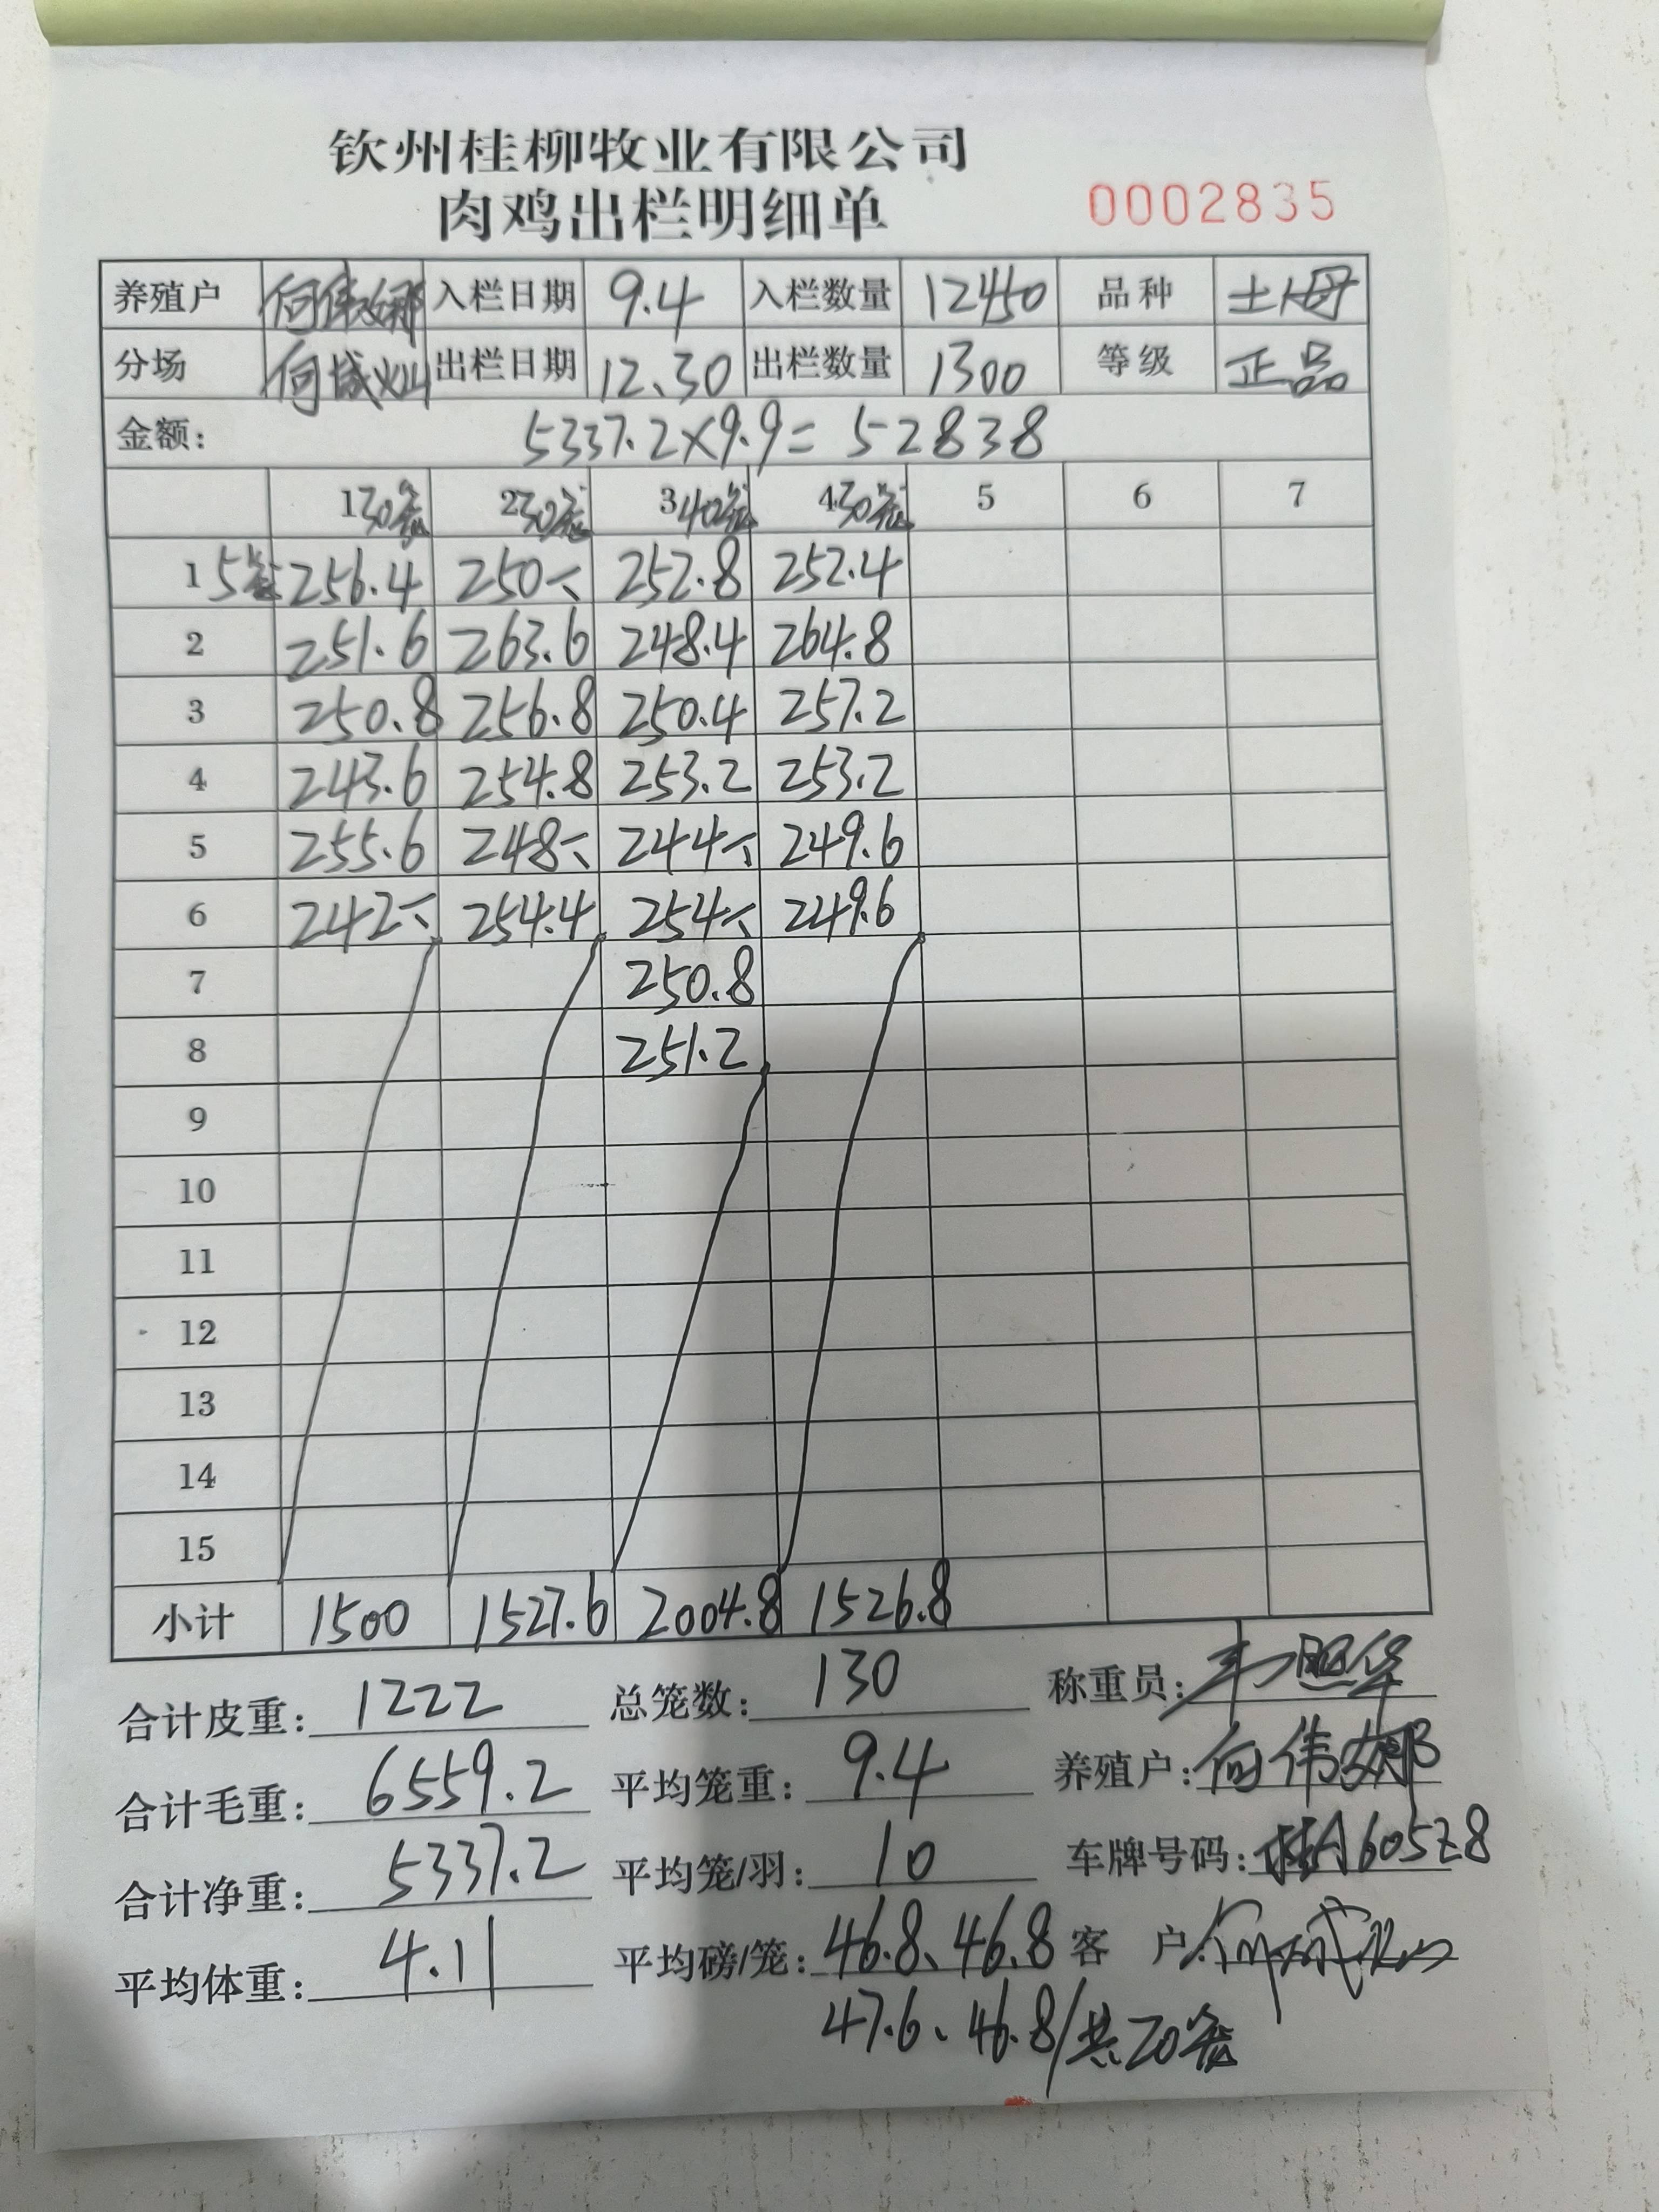 钦州桂柳牧业有限公司
肉鸡出栏明细单 0002835
养殖户 何伟娜 入栏日期 9.4 入栏数量 12450 品种 土1母
分场 何城灿 出栏日期 12.30 出栏数量 1300 等级 正品
金额: 5337.2×9.9= 52838
1 30笼 2 30笼 3 40笼 4 30笼 5 6 7
1 5笼 256.4 250 252.8 252.4
2 251.6 263.6 248.4 264.8
3 250.8 256.8 250.4 257.2
4 243.6 254.8 253.2 253.2
5 255.6 248 244 249.6
6 242 254.4 254 249.6
7 250.8
8 251.2
9
10
11
12
13
14
15
小计 1500 1527.6 2004.8 1526.8
合计皮重: 1222 总笼数: 130 称重员:
合计毛重: 6559.2 平均笼重: 9.4 养殖户: 何伟娜
合计净重: 5337.2 平均笼/羽: 10 车牌号码: 桂A60528
平均体重: 4.11 平均磅/笼: 46.8、46.8 客 户:
47.6、46.8/共20笼